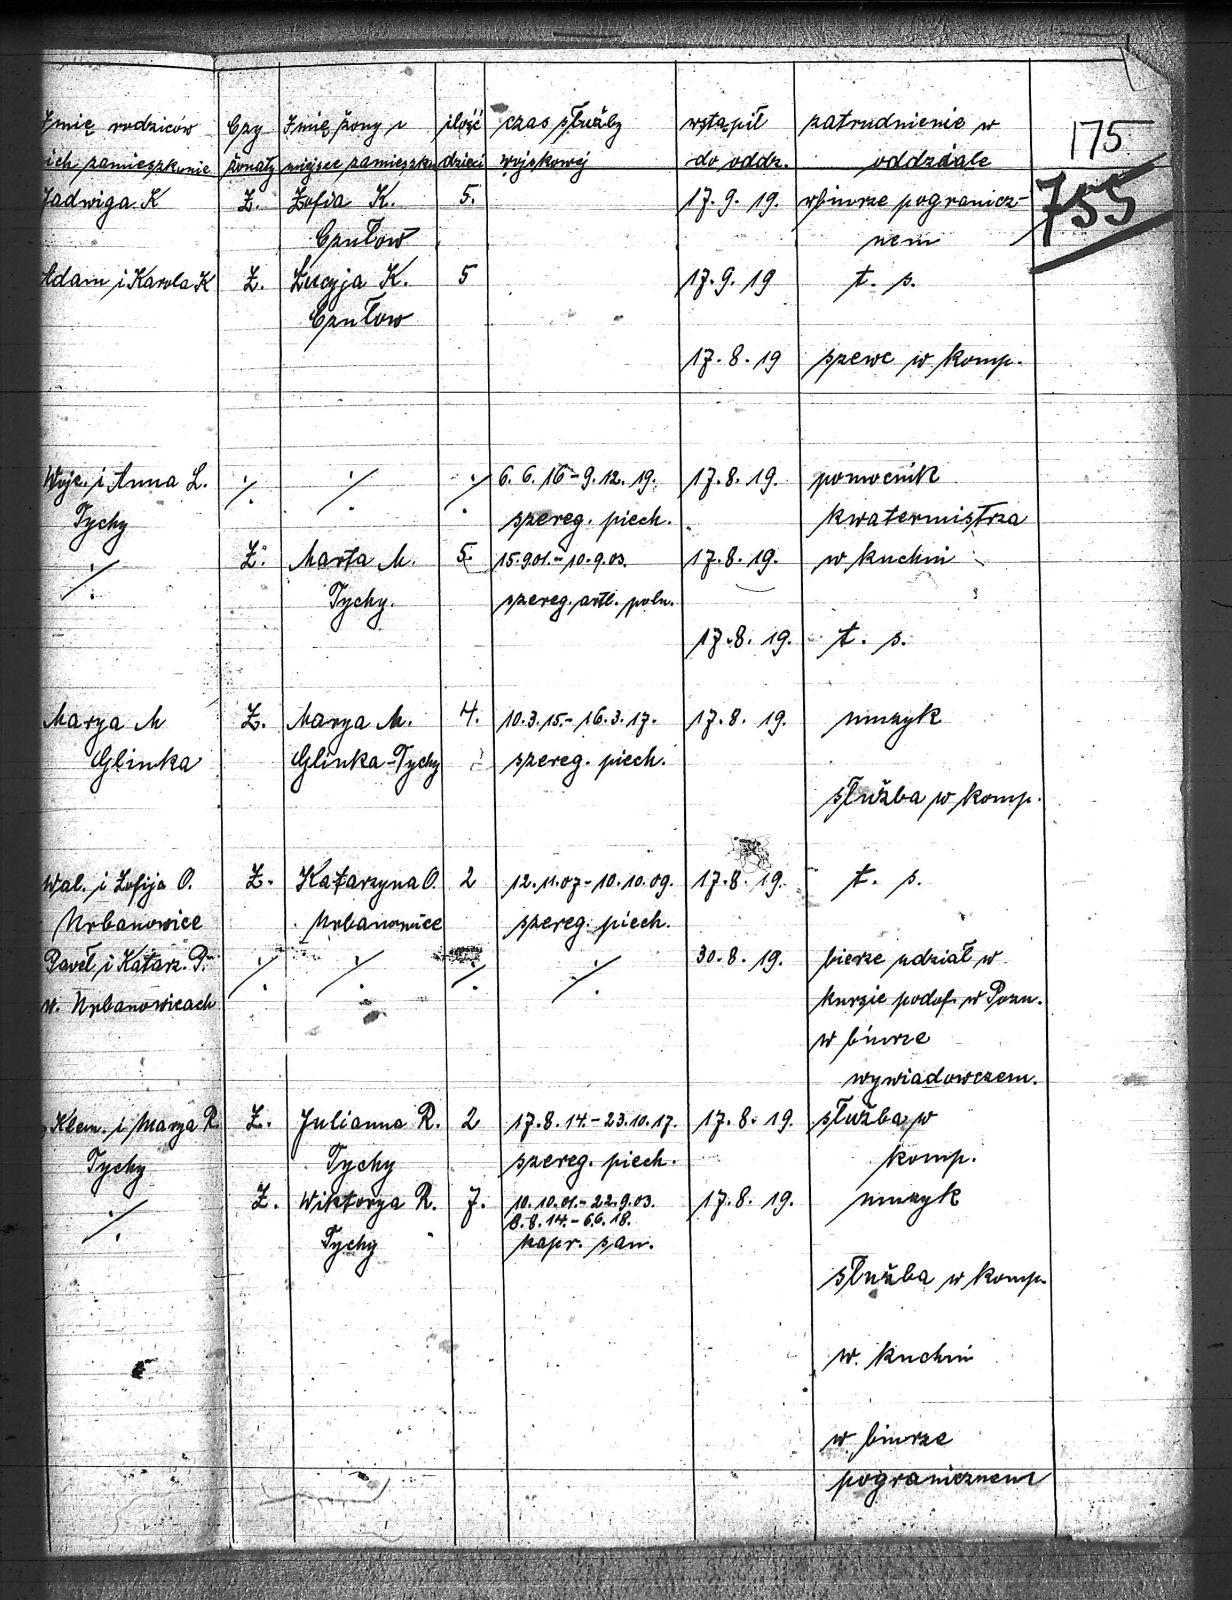 Imię rodziców Czy Imię żony i ilość czas służby wstąpił zatrudnienie w 175
ich zamieszkanie żonaty miejsce zamieszk. dzieci wojskowej do oddz. oddziale
755
Jadwiga K Ż. Zofia K. 5. 17. 9. 19. w biurze pogranicz-
Czułow nem
Adam i Karola K Ż. Łucyja K. 5 17. 9. 19 t. s.
Czułow
17. 8. 19 szewc w komp.
Wojc. i Anna L. ·/. ·/. ·/. 6. 6. 16 - 9. 12. 19. 17. 8. 19. pomocnik
Tychy szereg. piech. kwatermistrza
·/. Ż. Marta M. 5. 15.9.01. - 10.9.03. 17. 8. 19. w kuchni
Tychy. szereg. artl. poln.
17. 8. 19. t. s.
Marya M Ż. Marya M. 4. 10.3.15. - 16.3.17. 17. 8. 19. muzyk
Glinka Glinka-Tychy szereg. piech.
służba w komp.
Wal. i Zofija O. Ż. Katarzyna O. 2 12.11.07 - 10.10.09. 17. 8. 19. t. s.
Urbanowice Urbanowice szereg. piech.
Paweł i Katarz. P. ·/. ·/. ·/. ·/. 30. 8. 19. bierze udział w
w. Urbanowicach kurzie podof. w Pozn.
w biurze
wywiadowczem.
Klem. i Marya R. Ż. Julianna R. 2 17.8.14. - 23.10.17. 17. 8. 19. służba w
Tychy Tychy szereg. piech. komp.
·/. Ż. Wiktorya R. 7. 10.10.01. - 22.9.03. 17. 8. 19. muzyk
8.8.14. - 6.6.18.
Tychy kapr. san.
służba w komp.
w. kuchni
w biurze
pogranicznem